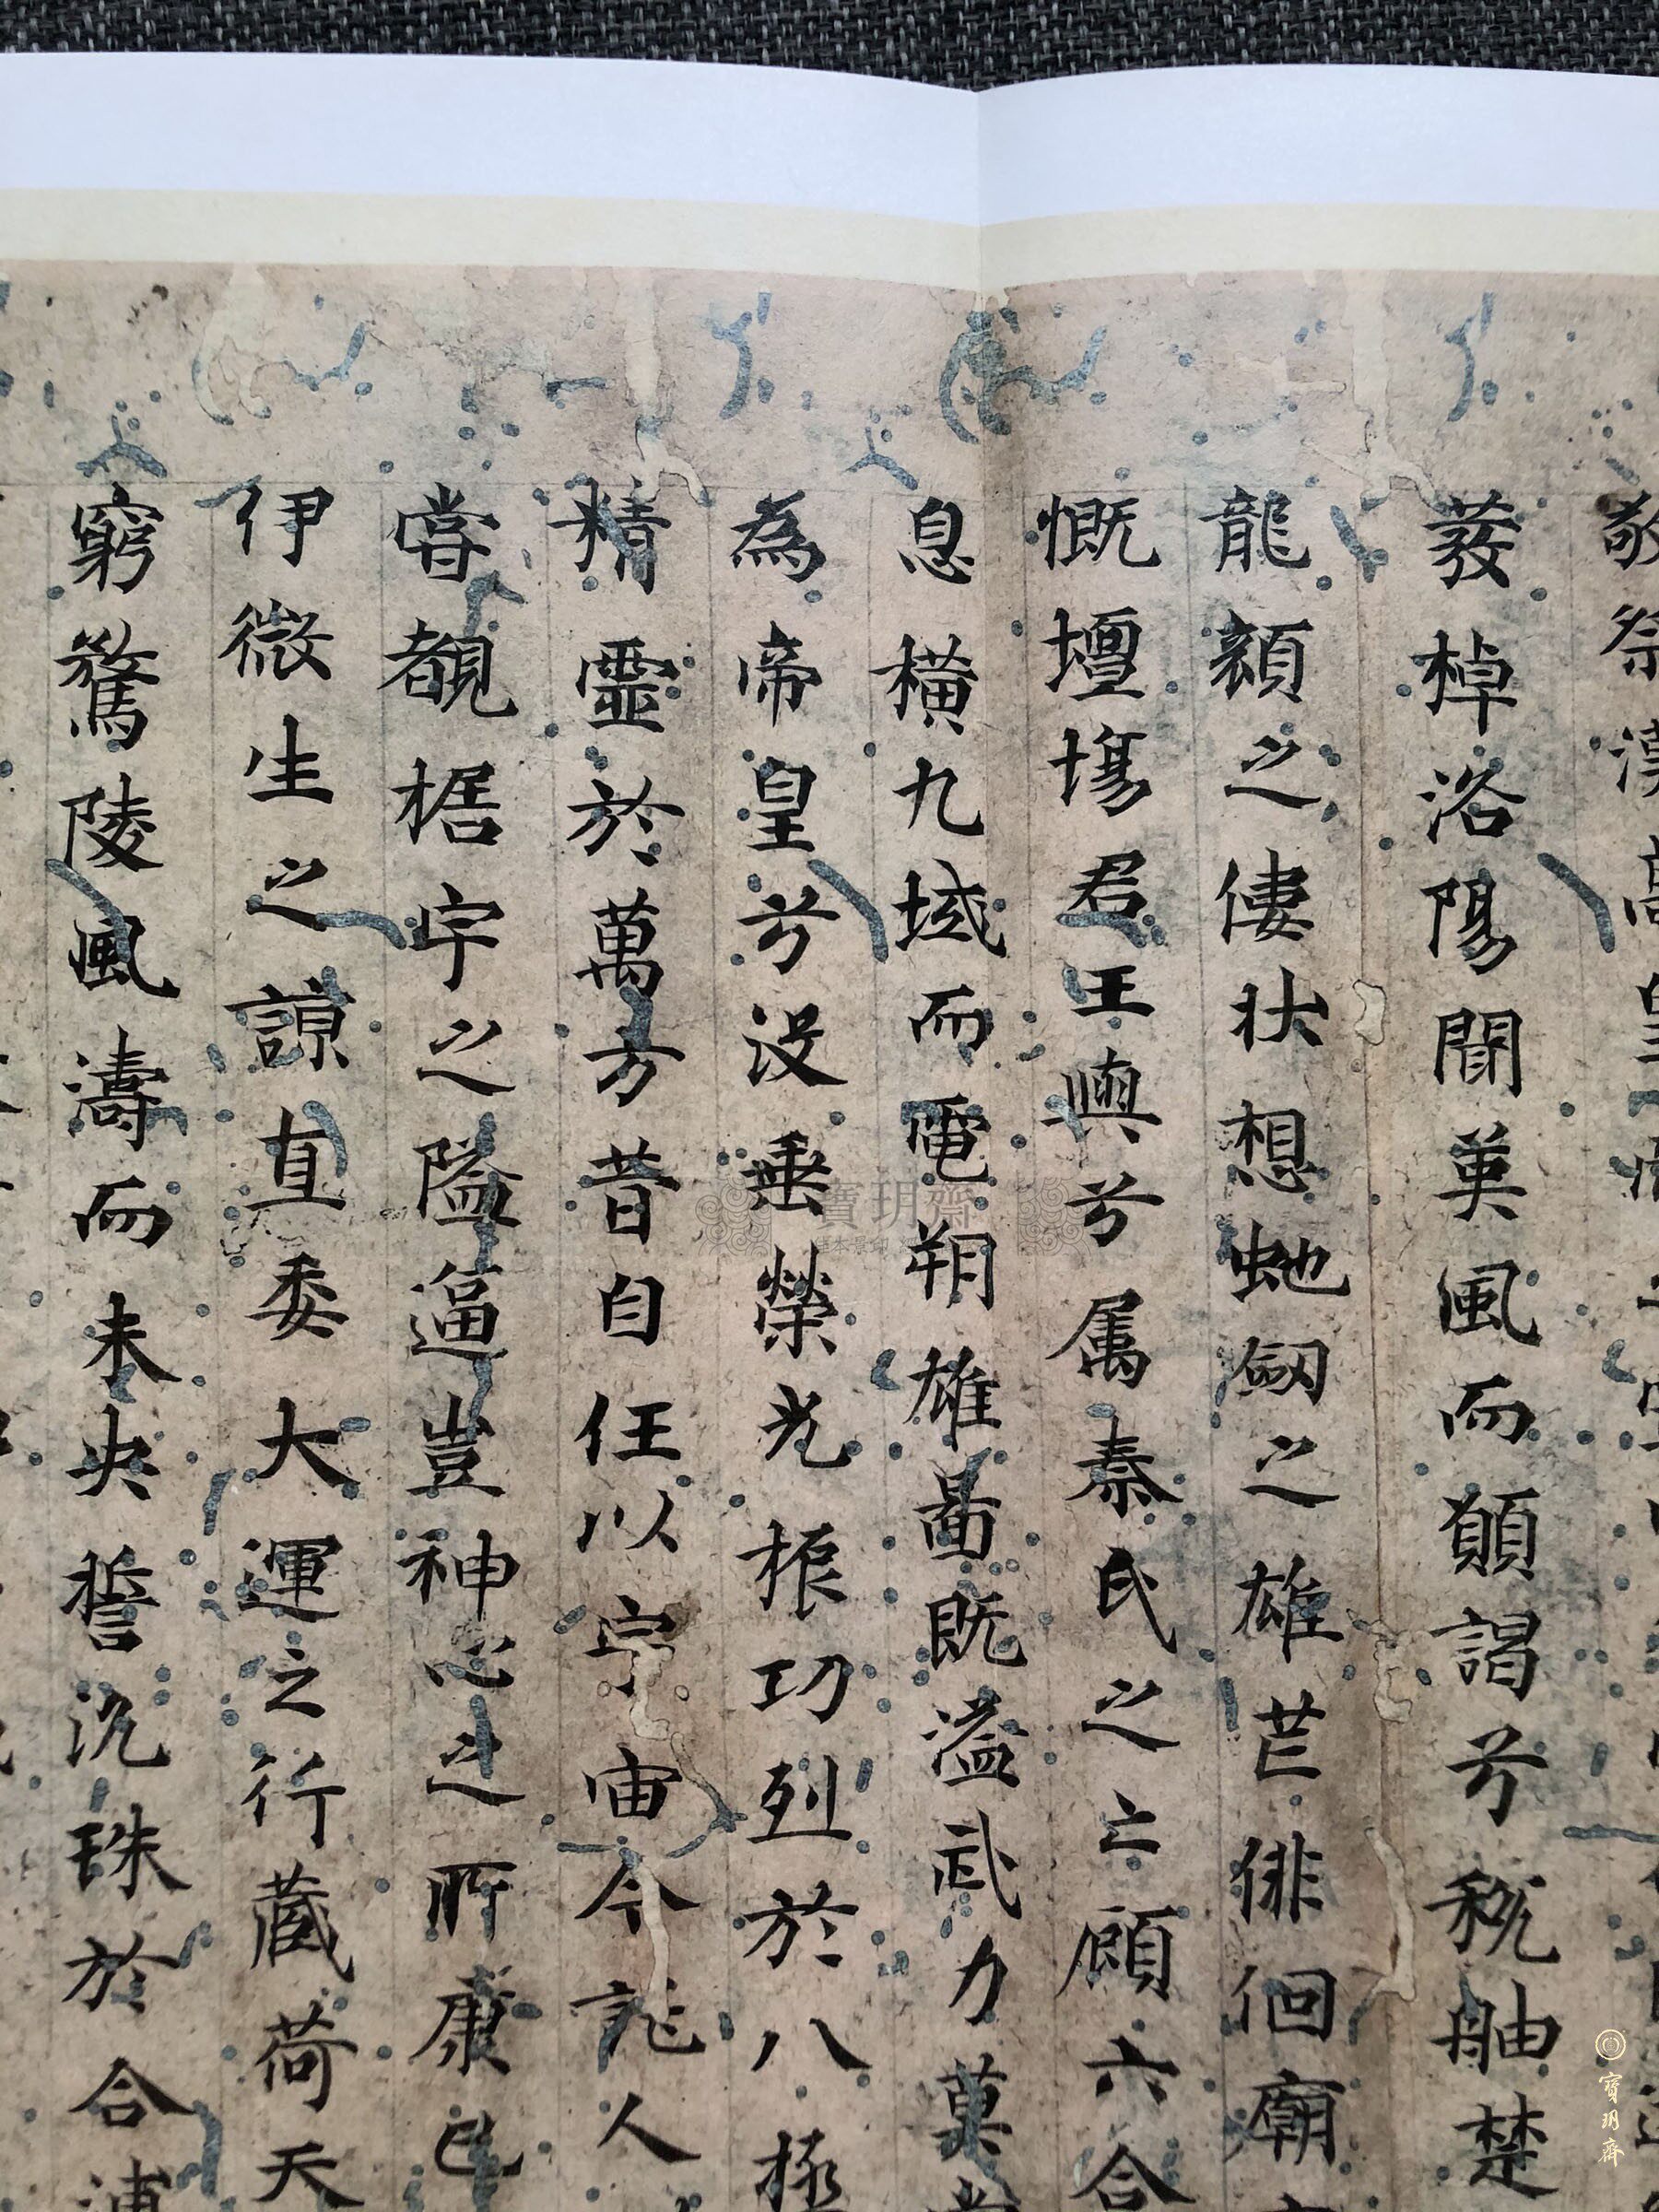 敬祭漢高皇帝之
發棹洛陽聞英風而願謁兮税舳楚
龍顏之僂狀想虵劒之雄芒徘徊廟
慨壇塲君王輿兮属秦氏之亡顧六合
息橫九域而電朔雄啚既溢武力莫
為帝皇兮沒垂榮光桭功烈於八極
精靈於萬方昔自任以宇宙今託人
嘗覩椐宇之隘逼豈神心之所康已
伊微生之諒直委大運之行藏荷天
窮騖陵風濤而未央誓沉珠於合浦
寶玥齋
寶玥齋